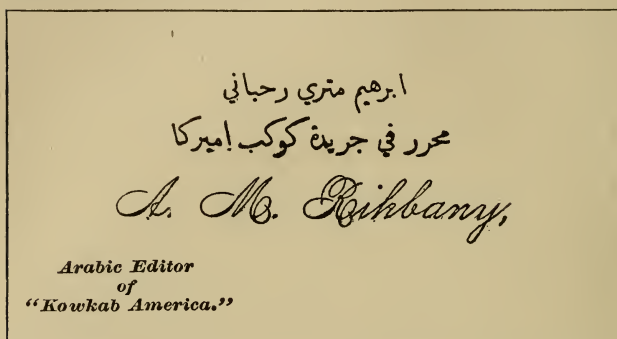 ابرهيم متري رحباني
محرر في جريدة كوكب اميركا
A. M. Rihbany,
Arabic Editor
of
"Kowkab America."